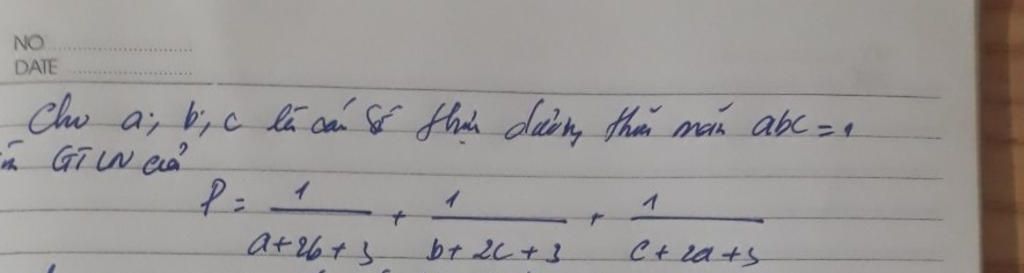 NO
DATE
Cho a; b; c là các số thực dương thỏa mãn abc = 1
GTLN của
P = 1/(a+2b+3) + 1/(b+2c+3) + 1/(c+2a+3)